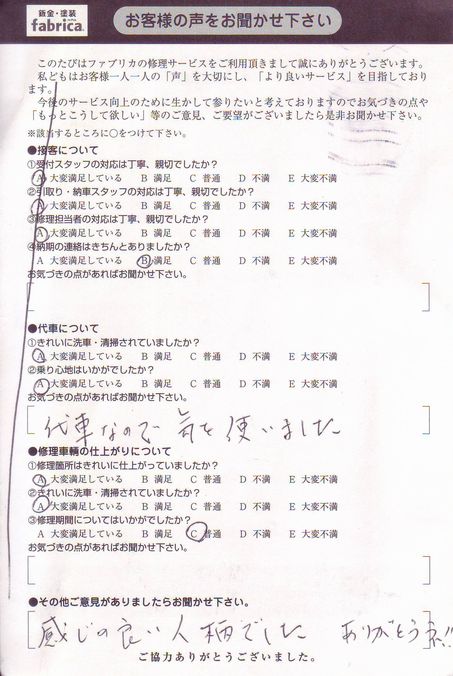 鈑金・塗装
fabrica.
お客様の声をお聞かせ下さい
このたびはファブリカの修理サービスをご利用頂きまして誠にありがとうございます。
私どもはお客様一人一人の「声」を大切にし、「より良いサービス」を目指しており
ます。
今後のサービス向上のために生かして参りたいと考えておりますのでお気づきの点や
「もっとこうして欲しい」等のご意見、ご要望がございましたら是非お聞かせ下さい。
※該当するところに○をつけて下さい。
●接客について
①受付スタッフの対応は丁寧、親切でしたか？
A 大変満足している B 満足 C 普通 D 不満 E 大変不満
②引取り・納車スタッフの対応は丁寧、親切でしたか？
A 大変満足している B 満足 C 普通 D 不満 E 大変不満
③修理担当者の対応は丁寧、親切でしたか？
A 大変満足している B 満足 C 普通 D 不満 E 大変不満
④納期の連絡はきちんとありましたか？
A 大変満足している B 満足 C 普通 D 不満 E 大変不満
お気づきの点があればお聞かせ下さい。
●代車について
①きれいに洗車・清掃されていましたか？
A 大変満足している B 満足 C 普通 D 不満 E 大変不満
②乗り心地はいかがでしたか？
A 大変満足している B 満足 C 普通 D 不満 E 大変不満
お気づきの点があればお聞かせ下さい。
代車なので気を使いました
●修理車輌の仕上がりについて
①修理箇所はきれいに仕上がっていましたか？
A 大変満足している B 満足 C 普通 D 不満 E 大変不満
②きれいに洗車・清掃されていましたか？
A 大変満足している B 満足 C 普通 D 不満 E 大変不満
③修理期間についてはいかがでしたか？
A 大変満足している B 満足 C 普通 D 不満 E 大変不満
お気づきの点があればお聞かせ下さい。
●その他ご意見がありましたらお聞かせ下さい。
感じの良い人柄でした ありがとうネ!!
ご協力ありがとうございました。